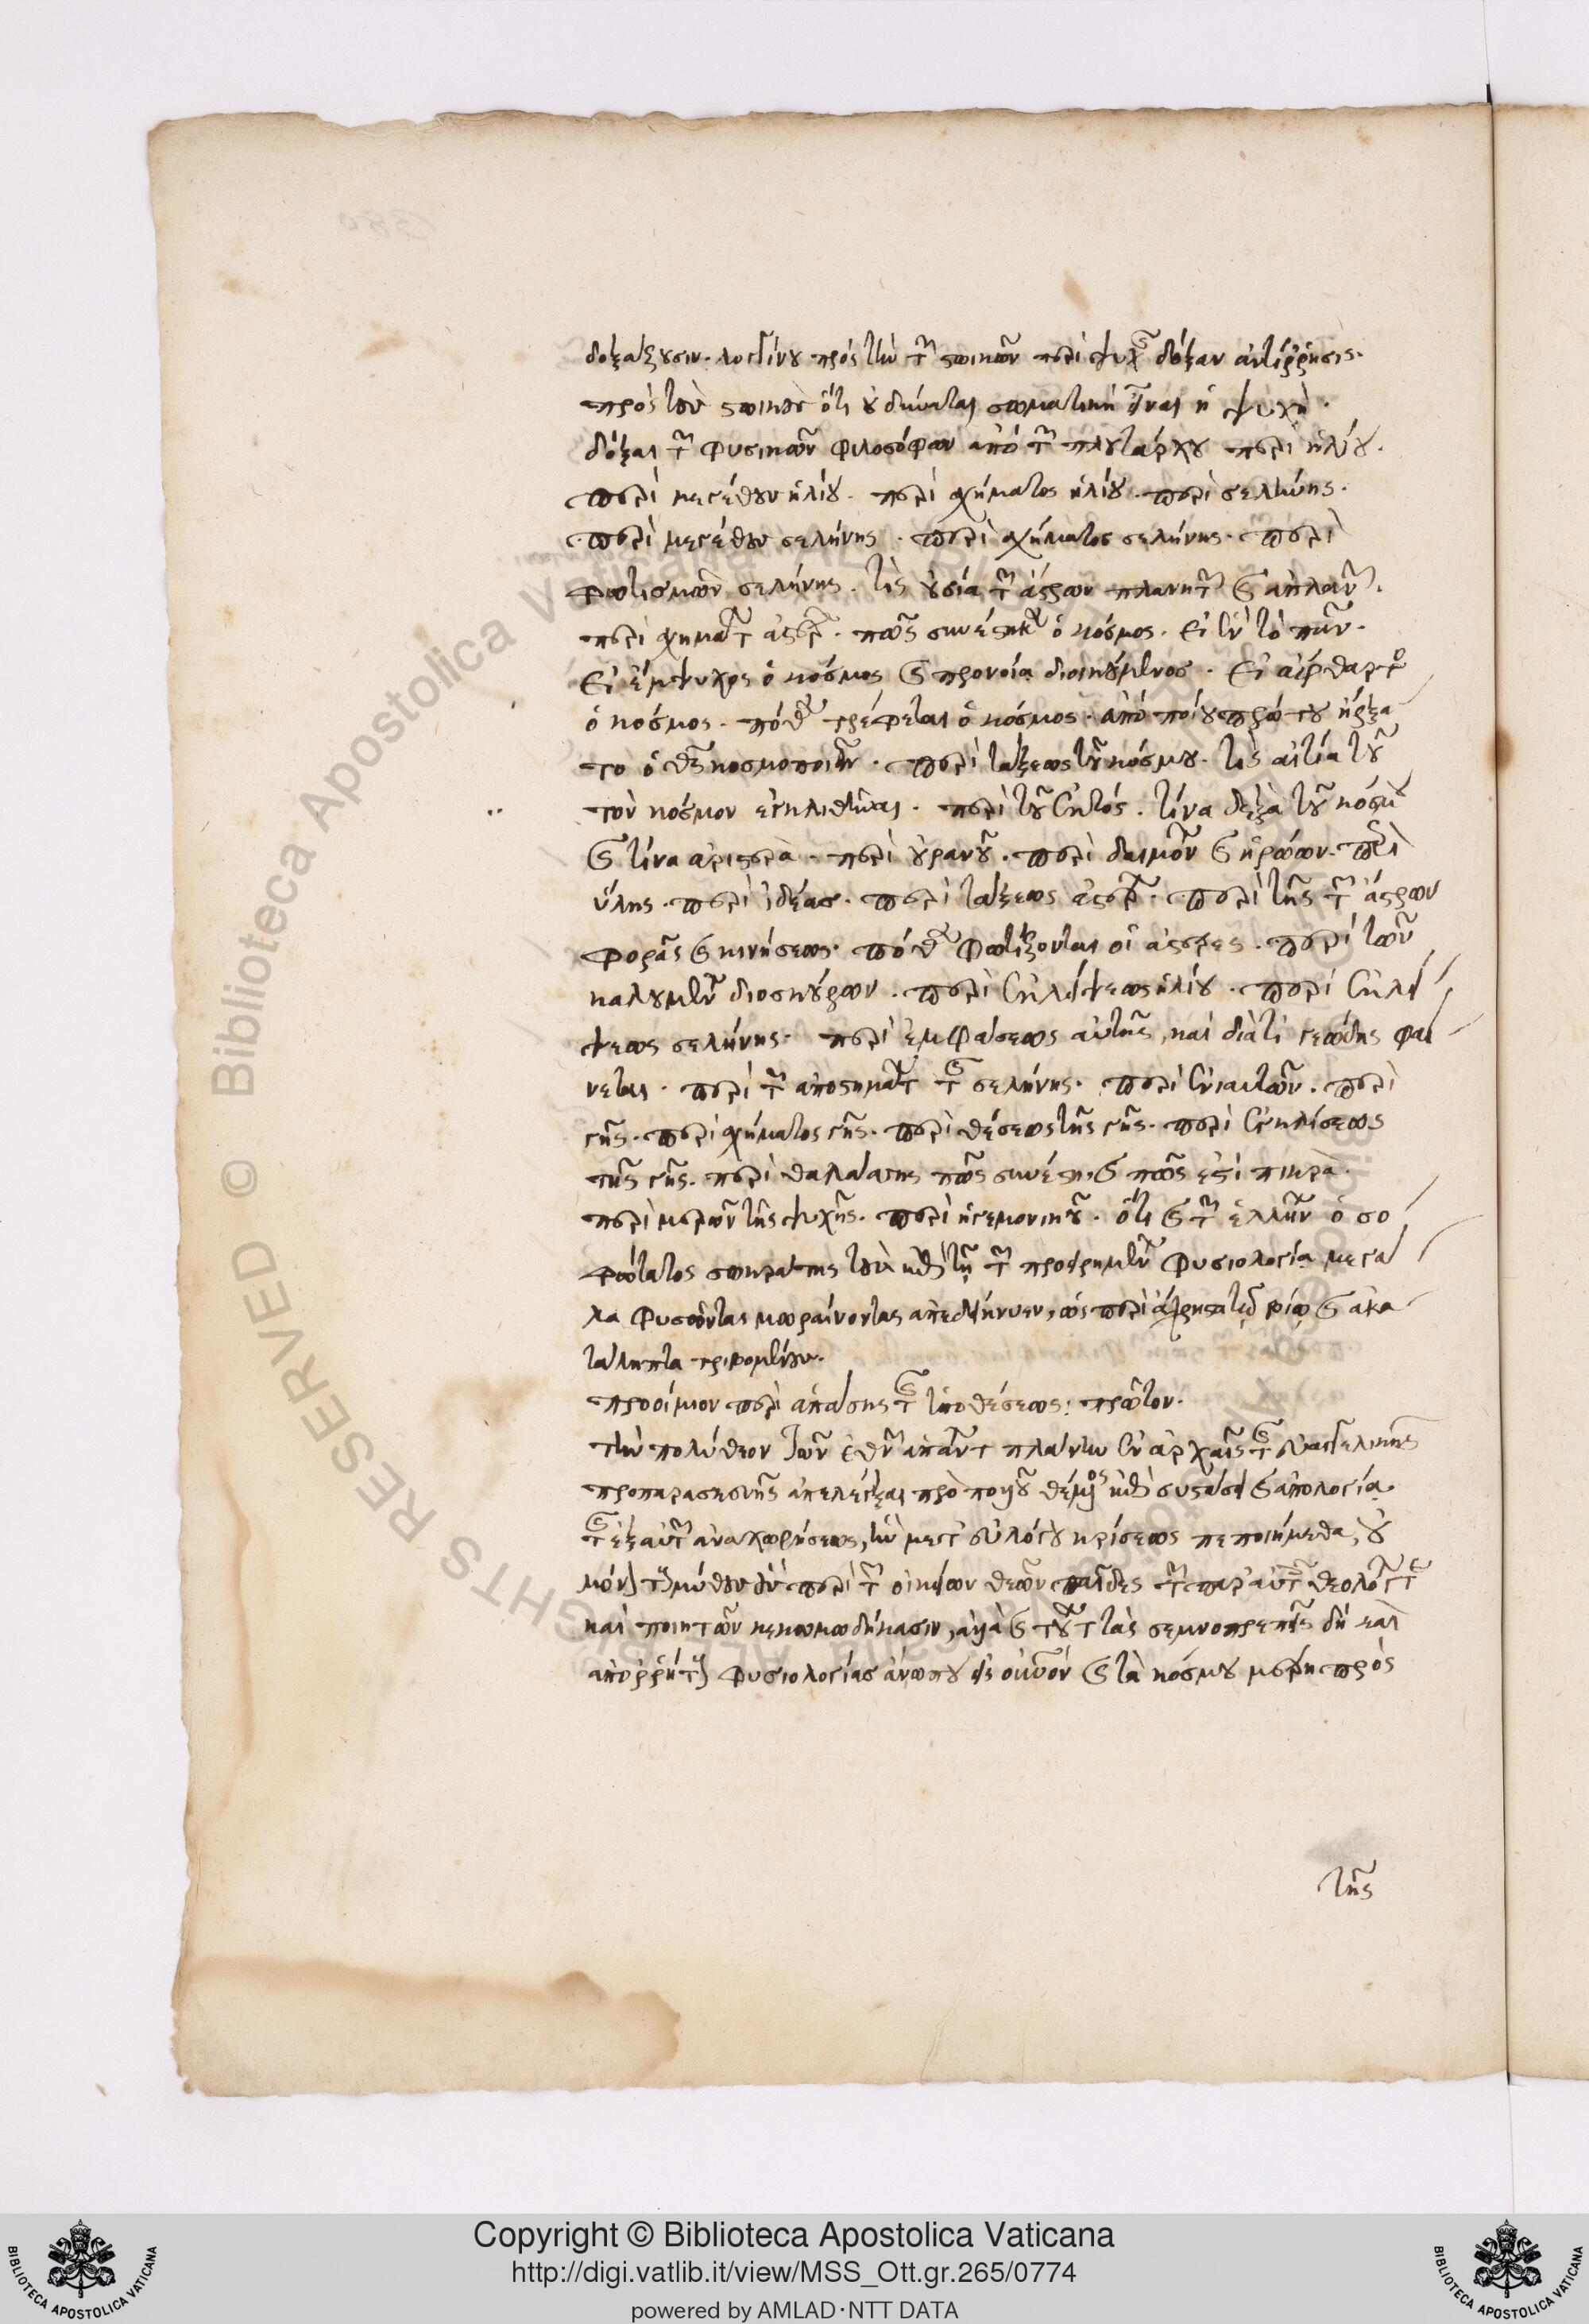 δοξάζουσιν· λογγίνου πρὸς τὴν τῶν στωικῶν περὶ ψυχῆς δόξαν ἀντίρρησις·
πρὸς τοὺς στωικοὺς ὅτι οὐ δύναται σωματικὴ εἶναι ἡ ψυχὴ·
δόξαι τῶν φυσικῶν φιλοσόφων ἀπὸ τῶν πλουτάρχου περὶ ἡλίου·
περὶ μεγέθους ἡλίου· περὶ σχήματος ἡλίου· περὶ σελήνης·
περὶ μεγέθους σελήνης· περὶ σχήματος σελήνης· περὶ
φωτισμῶν σελήνης· τίς οὐσία τῶν ἄστρων πλανητῶν καὶ ἀπλανῶν·
περὶ σχημάτων ἀστέρων· πῶς συνέστηκεν ὁ κόσμος· εἰ ἓν τὸ πᾶν·
εἰ ἔμψυχος ὁ κόσμος καὶ προνοίᾳ διοικούμενος· εἰ ἄφθαρτος
ὁ κόσμος· πόθεν τρέφεται ὁ κόσμος· ἀπὸ ποίου πρώτου ἤρξα
το ὁ θεὸς κοσμοποιεῖν· περὶ τάξεως τοῦ κόσμου· τίς αἰτία τοῦ
τὸν κόσμον ἐγκλιθῆναι· περὶ τοῦ ἐκτός· τίνα δεξιὰ τοῦ κόσμου
καὶ τίνα ἀριστερὰ· περὶ οὐρανοῦ· περὶ δαιμόνων καὶ ἡρώων· περὶ
ὕλης· περὶ ἰδέας· περὶ τάξεως ἀστέρων· περὶ τῆς τῶν ἄστρων
φορᾶς καὶ κινήσεως· πόθεν φωτίζονται οἱ ἀστέρες· περὶ τῶν
καλουμένων διοσκούρων· περὶ ἐκλείψεως ἡλίου· περὶ ἐκλεί
ψεως σελήνης· περὶ ἐμφάσεως αὐτῆς, καὶ διὰ τί γεώδης φαί
νεται· περὶ τῶν ἀποστημάτων τῆς σελήνης· περὶ ἐνιαυτῶν· περὶ
γῆς· περὶ σχήματος γῆς· περὶ θέσεως τῆς γῆς· περὶ ἐγκλίσεως
τῆς γῆς· περὶ θαλάσσης πῶς συνέστη, καὶ πῶς ἐστὶ πικρὰ·
περὶ μερῶν τῆς ψυχῆς· περὶ ἡγεμονικοῦ· ὅτι καὶ τῶν ἑλλήνων ὁ σο
φώτατος σωκράτης τοὺς ἐπὶ τῇ τῶν προειρημένων φυσιολογίᾳ μεγά
λα φυσῶντας μωραίνοντας ἀπεδείκνυεν, ὡς περὶ ἄχρηστα τῷ βίῳ καὶ ἀκα
τάληπτα τριβομένους·
προοίμιον περὶ ἁπάσης τῆς ὑποθέσεως: πρῶτον·
τὴν πολύθεον τῶν ἐθνῶν ἁπάντων πλάνην ἐν ἀρχαῖς τῆς εὐαγγελικῆς
προπαρασκευῆς ἀπελέγξαι πρὸ πολλοῦ θέμενος ἐπὶ συστάσει καὶ ἀπολογίᾳ
τῆς ἐξ αὐτῶν ἀναχωρήσεως, ἣν μετ' εὐλόγου κρίσεως πεποιήμεθα, οὐ
μόνον τοὺς μύθους οὓς περὶ τῶν οἰκείων θεῶν παῖδες τῶν παρ' αὐτοῖς θεολόγων τε
καὶ ποιητῶν κεκωμῳδήκασιν, ἀλλὰ καὶ τούτων τὰς σεμνοπρεπεῖς δὴ καὶ
ἀπορρήτους φυσιολογίας ἄνω που εἰς οὐρανὸν καὶ τὰ κόσμου μέρη πρὸς
τῆς
Copyright © Biblioteca Apostolica Vaticana
http://digi.vatlib.it/view/MSS_Ott.gr.265/0774
powered by AMLAD·NTT DATA
© Biblioteca Apostolica Vaticana
ALL RIGHTS RESERVED
BIBLIOTECA APOSTOLICA VATICANA
BIBLIOTECA APOSTOLICA VATICANA